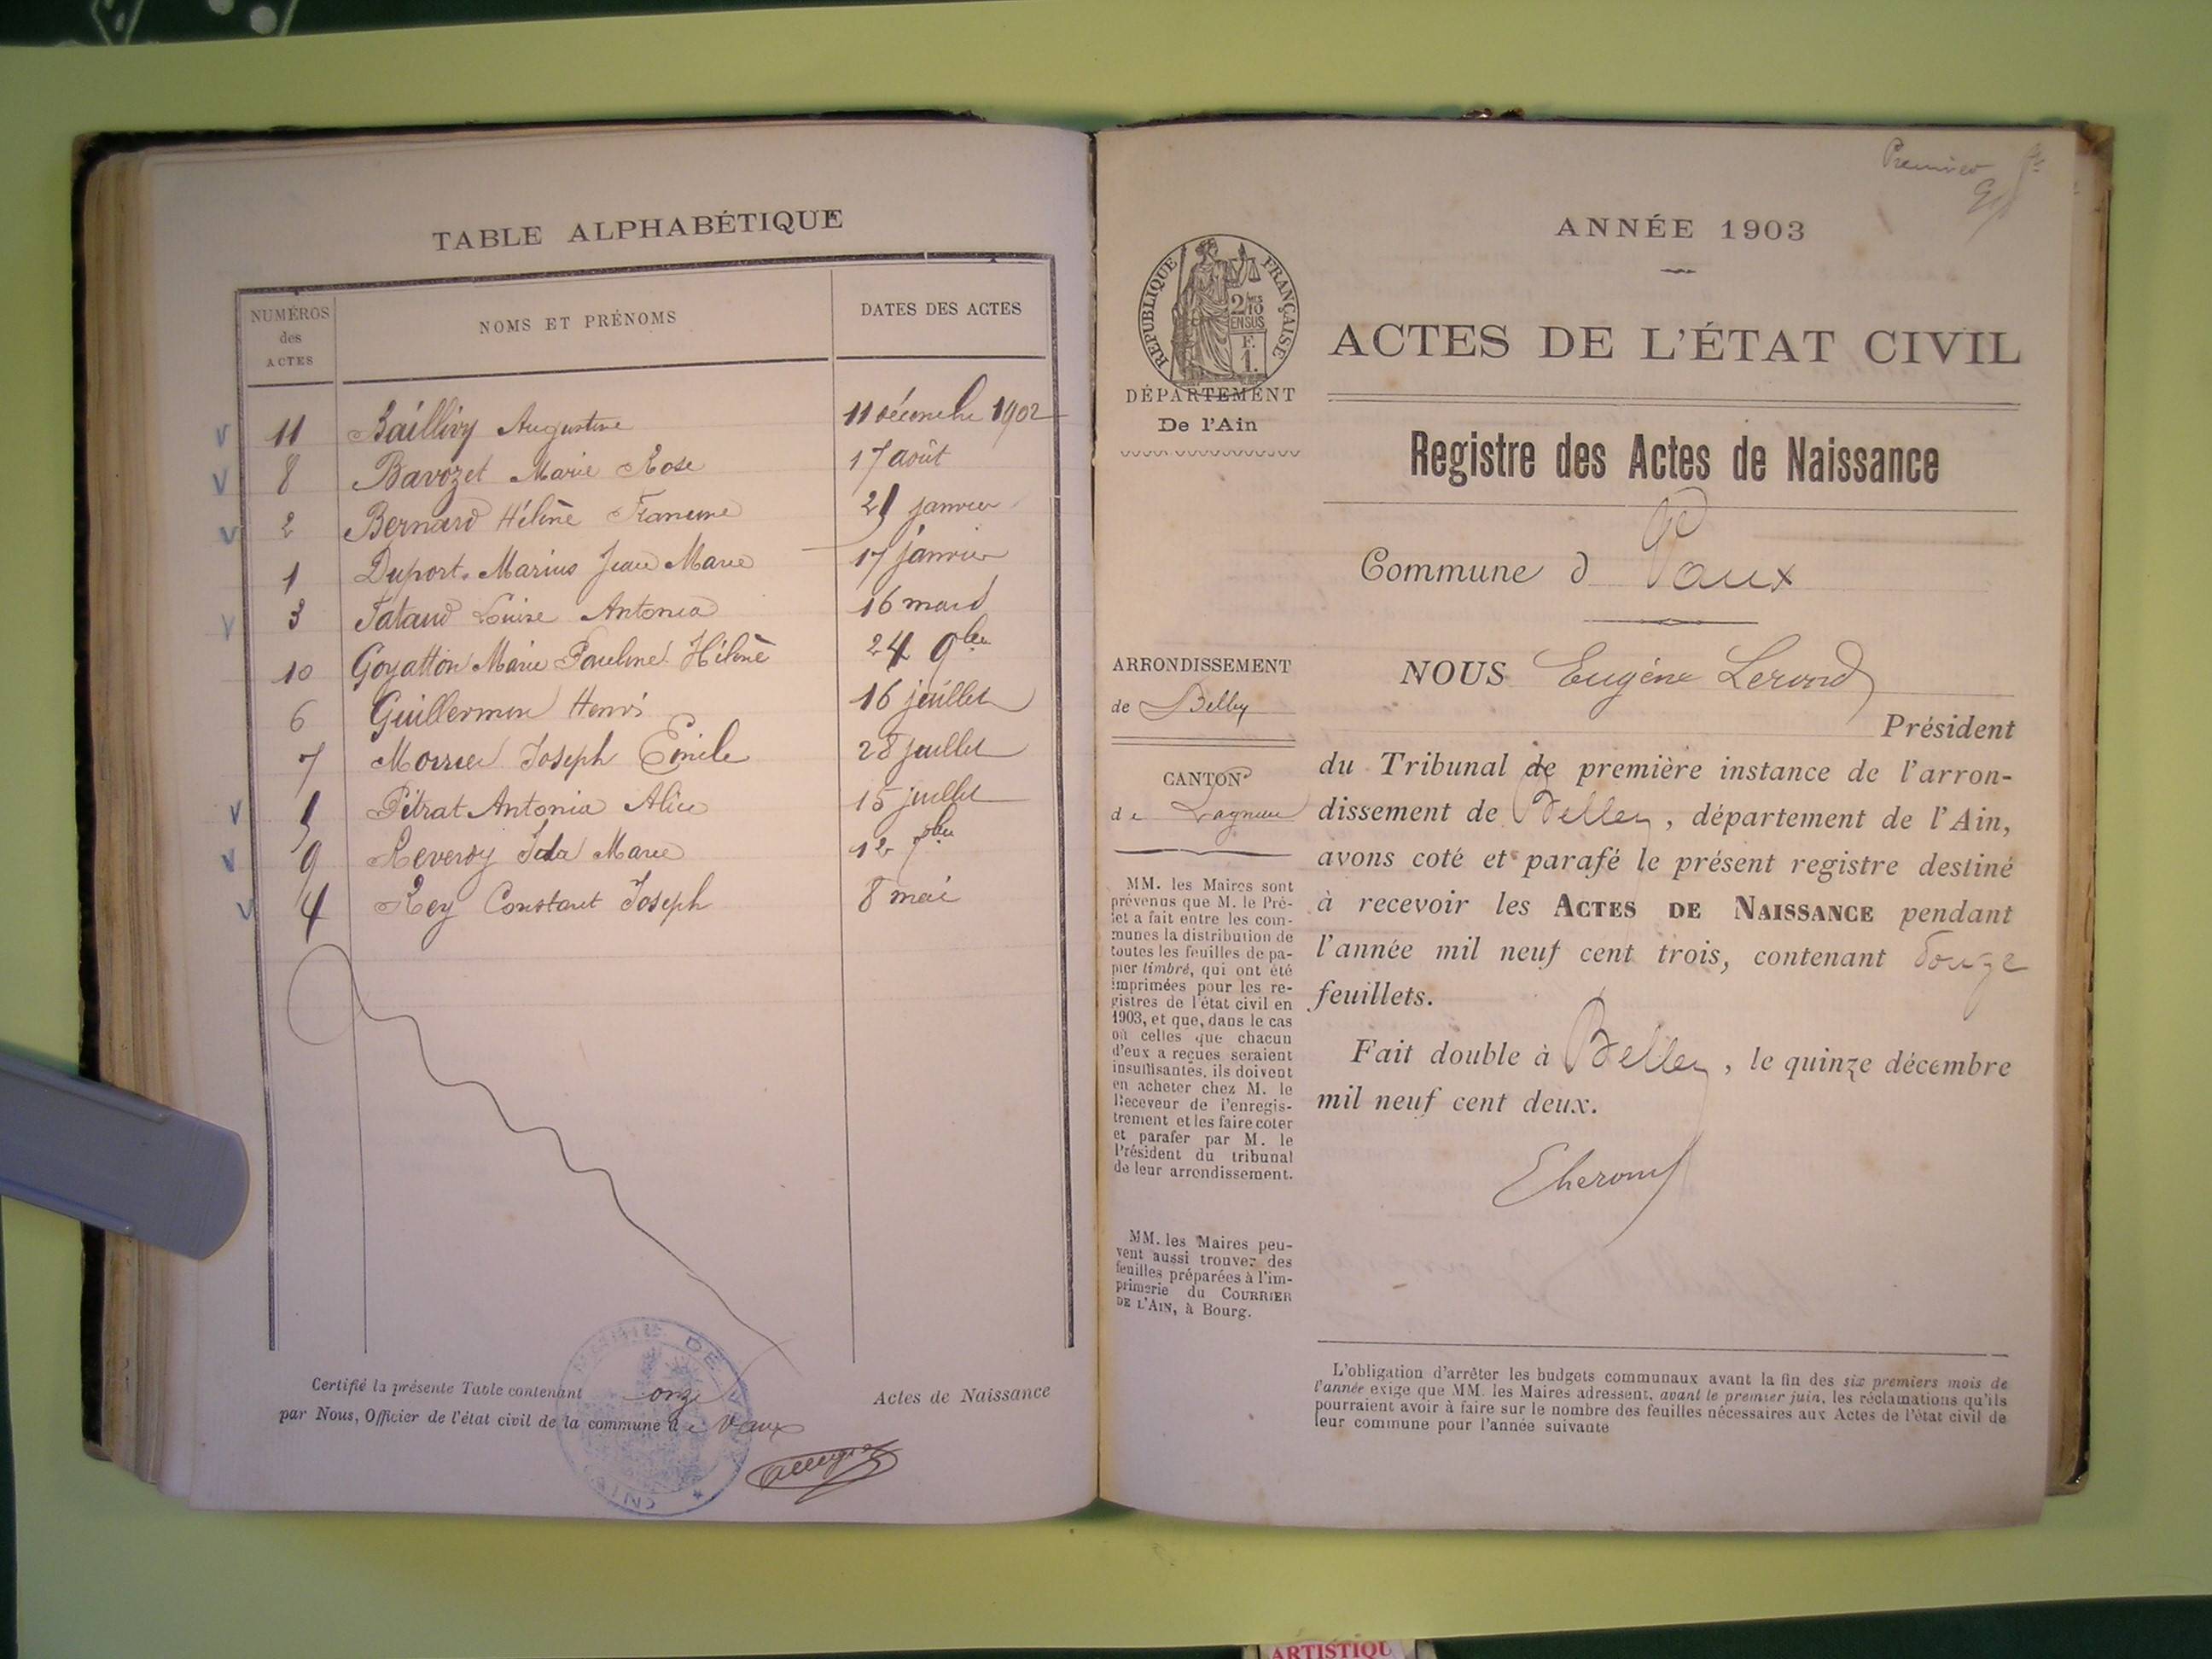 TABLE ALPHABÉTIQUE
NUMÉROS des ACTES
NOMS ET PRÉNOMS
DATES DES ACTES
11 Baillivy Augustine 11 décembre 1902
8 Bavozet Marie Rose 17 août
2 Bernard Hélène Francine 21 janvier
1 Duport Marius Jean Marie 17 janvier
3 Fataud Louise Antonia 16 mars
10 Goyatton Marie Pauline Hélène 24 9bre
6 Guillermin Henri 16 juillet
7 Joseph Emile 28 juillet
5 Pitrat Antonia Alice 15 juillet
9 Reverdy Ida Marie 12 7bre
4 Rey Constant Joseph 8 mai
Certifié la présente Table contenant onze Actes de Naissance
par Nous, Officier de l'état civil de la commune de Vaux
MAIRIE DE VAUX
Premier
ANNÉE 1903
RÉPUBLIQUE FRANÇAISE
2/10
EN SUS
F.
1.
ACTES DE L'ÉTAT CIVIL
DÉPARTEMENT
De l'Ain
Registre des Actes de Naissance
Commune d Vaux
ARRONDISSEMENT
de Belley
CANTON
de Lagnieu
MM. les Maires sont
prévenus que M. le Pré-
fet a fait entre les com-
munes la distribution de
toutes les feuilles de pa-
pier timbré, qui ont été
imprimées pour les re-
gistres de l'état civil en
1903, et que, dans le cas
où celles que chacun
d'eux a reçues seraient
insuffisantes, ils doivent
en acheter chez M. le
Receveur de l'enregis-
trement et les faire coter
et parafer par M. le
Président du tribunal
de leur arrondissement.
MM. les Maires peu-
vent aussi trouver des
feuilles préparées à l'im-
primerie du COURRIER
DE L'AIN, à Bourg.
NOUS Eugène Lerond
Président
du Tribunal de première instance de l'arron-
dissement de Belley, département de l'Ain,
avons coté et parafé le présent registre destiné
à recevoir les ACTES DE NAISSANCE pendant
l'année mil neuf cent trois, contenant douze
feuillets.
Fait double à Belley, le quinze décembre
mil neuf cent deux.
L'obligation d'arrêter les budgets communaux avant la fin des six premiers mois de
l'année exige que MM. les Maires adressent, avant le premier juin, les réclamations qu'ils
pourraient avoir à faire sur le nombre des feuilles nécessaires aux Actes de l'état civil de
leur commune pour l'année suivante
ARTISTIQU